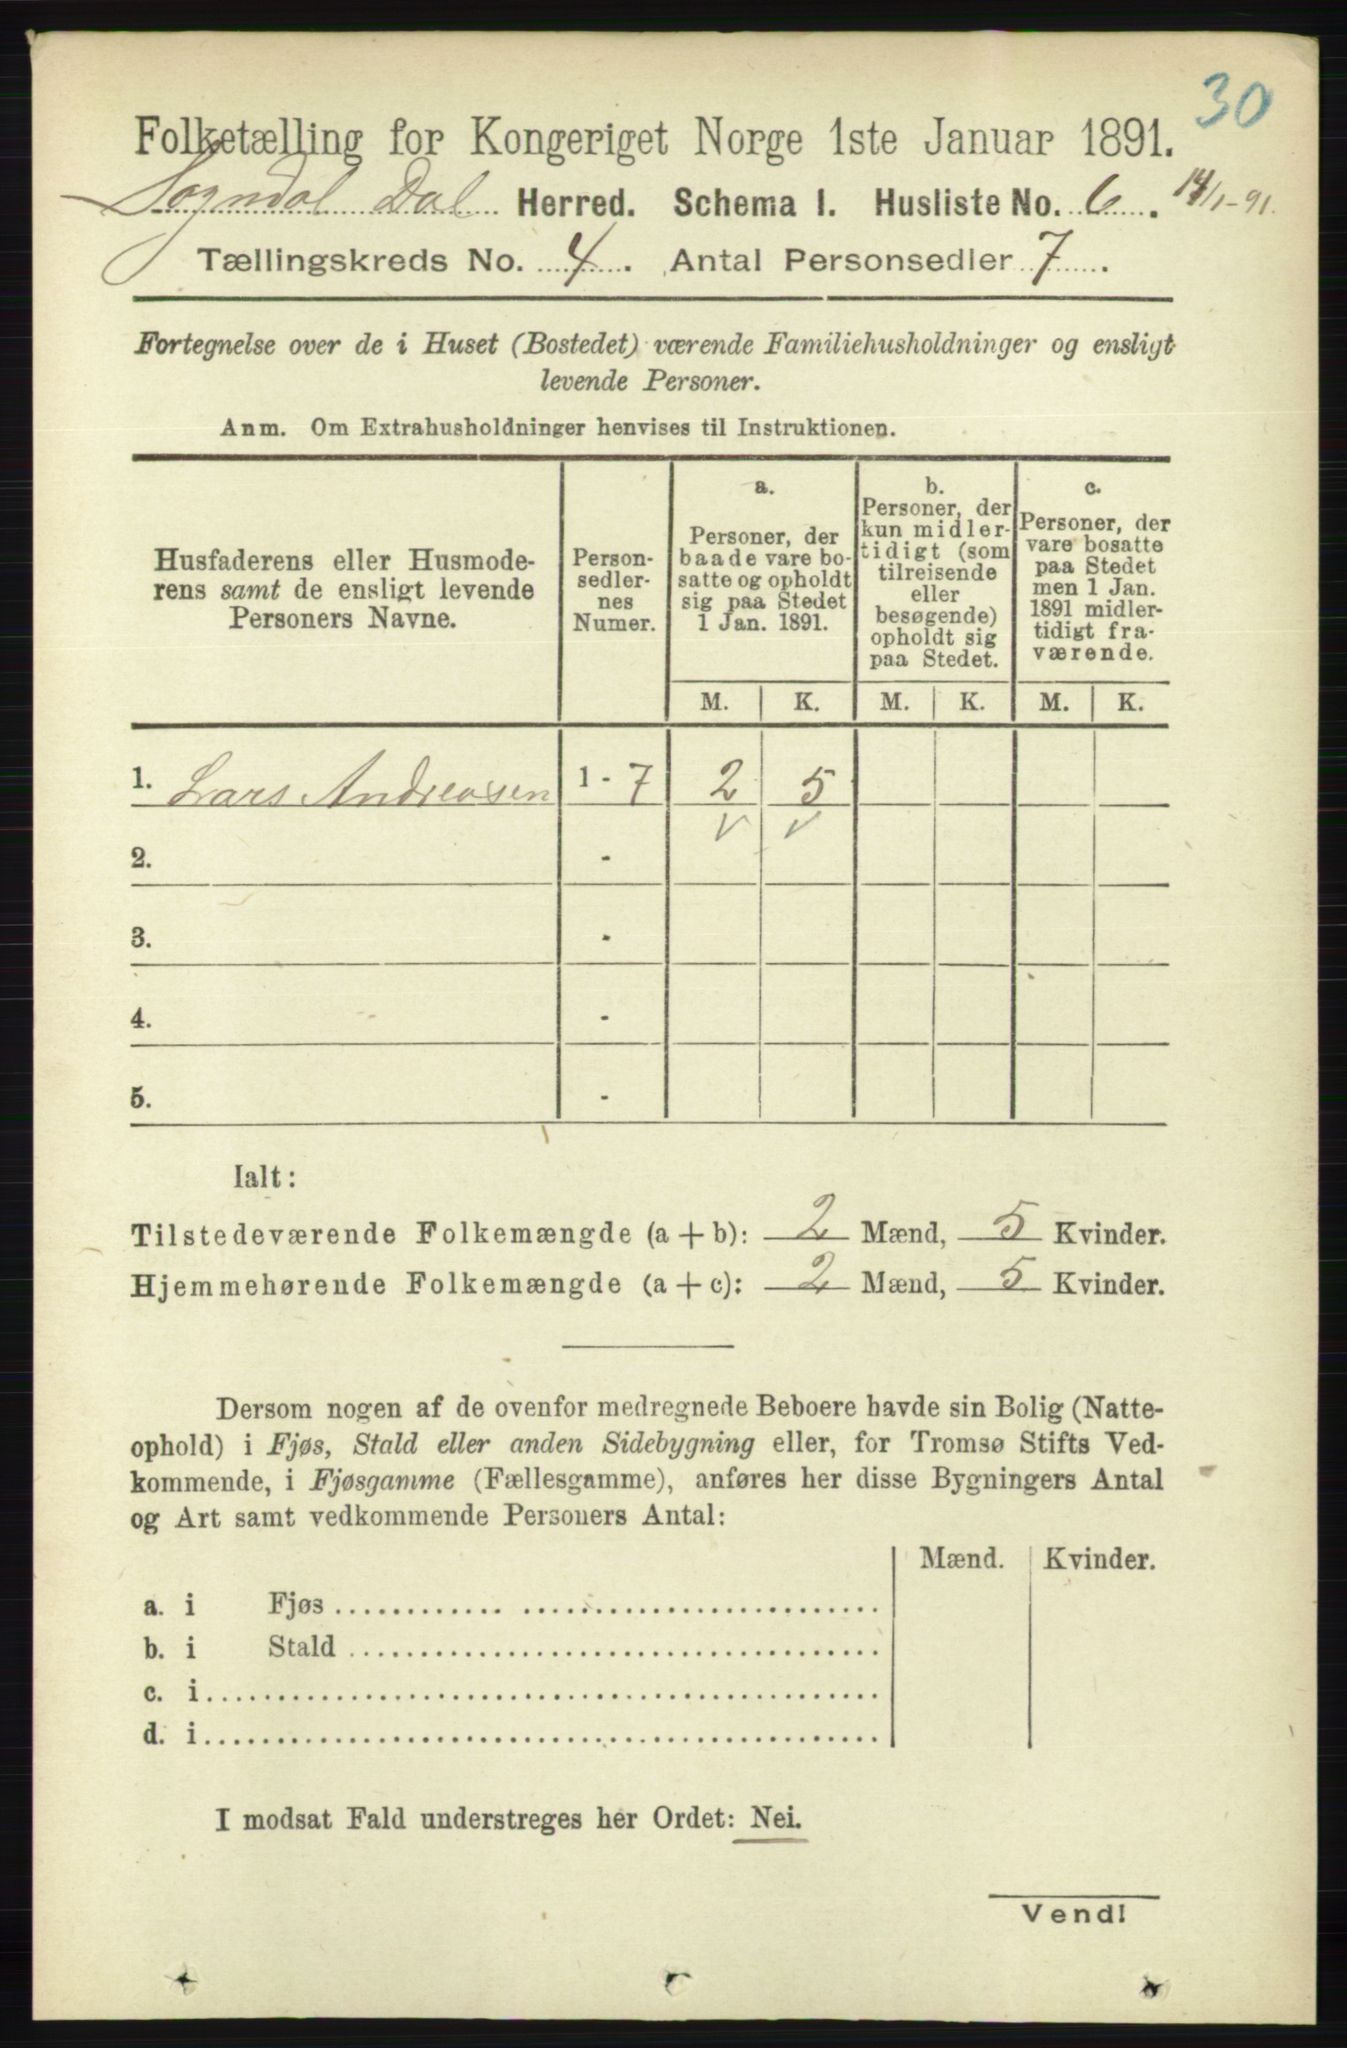 30
Folketælling for Kongeriget Norge 1ste Januar 1891.
Sogndal Dal Herred. Schema 1. Husliste No. 6. 14/1-91.
Tællingskreds No. 4. Antal Personsedler 7.
Fortegnelse over de i Huset (Bostedet) værende Familiehusholdninger og ensligt
levende Personer.
Anm. Om Extrahusholdninger henvises til Instruktionen.
Husfaderens eller Husmode-
rens samt de ensligt levende
Personers Navne.
Person-
sedler-
nes
Numer.
a.
Personer, der
baade vare bo-
satte og opholdt
sig paa Stedet
1 Jan. 1891.
b.
Personer, der
kun midler-
tidigt (som
tilreisende
eller
besøgende)
opholdt sig
paa Stedet.
c.
Personer, der
vare bosatte
paa Stedet
men 1 Jan.
1891 midler-
tidigt fra-
værende.
M. K. M. K. M. K.
1. Lars Andreasen 1 - 7 2 5
2. -
3. -
4. -
5. -
Ialt:
Tilstedeværende Folkemængde (a + b): 2 Mænd, 5 Kvinder.
Hjemmehørende Folkemængde (a + c): 2 Mænd, 5 Kvinder.
Dersom nogen af de ovenfor medregnede Beboere havde sin Bolig (Natte-
ophold) i Fjøs, Stald eller anden Sidebygning eller, for Tromsø Stifts Ved-
kommende, i Fjøsgamme (Fællesgamme), anføres her disse Bygningers Antal
og Art samt vedkommende Personers Antal:
Mænd. Kvinder.
a. i Fjøs
b. i Stald
c. i
d. i
I modsat Fald understreges her Ordet: Nei.
Vend!